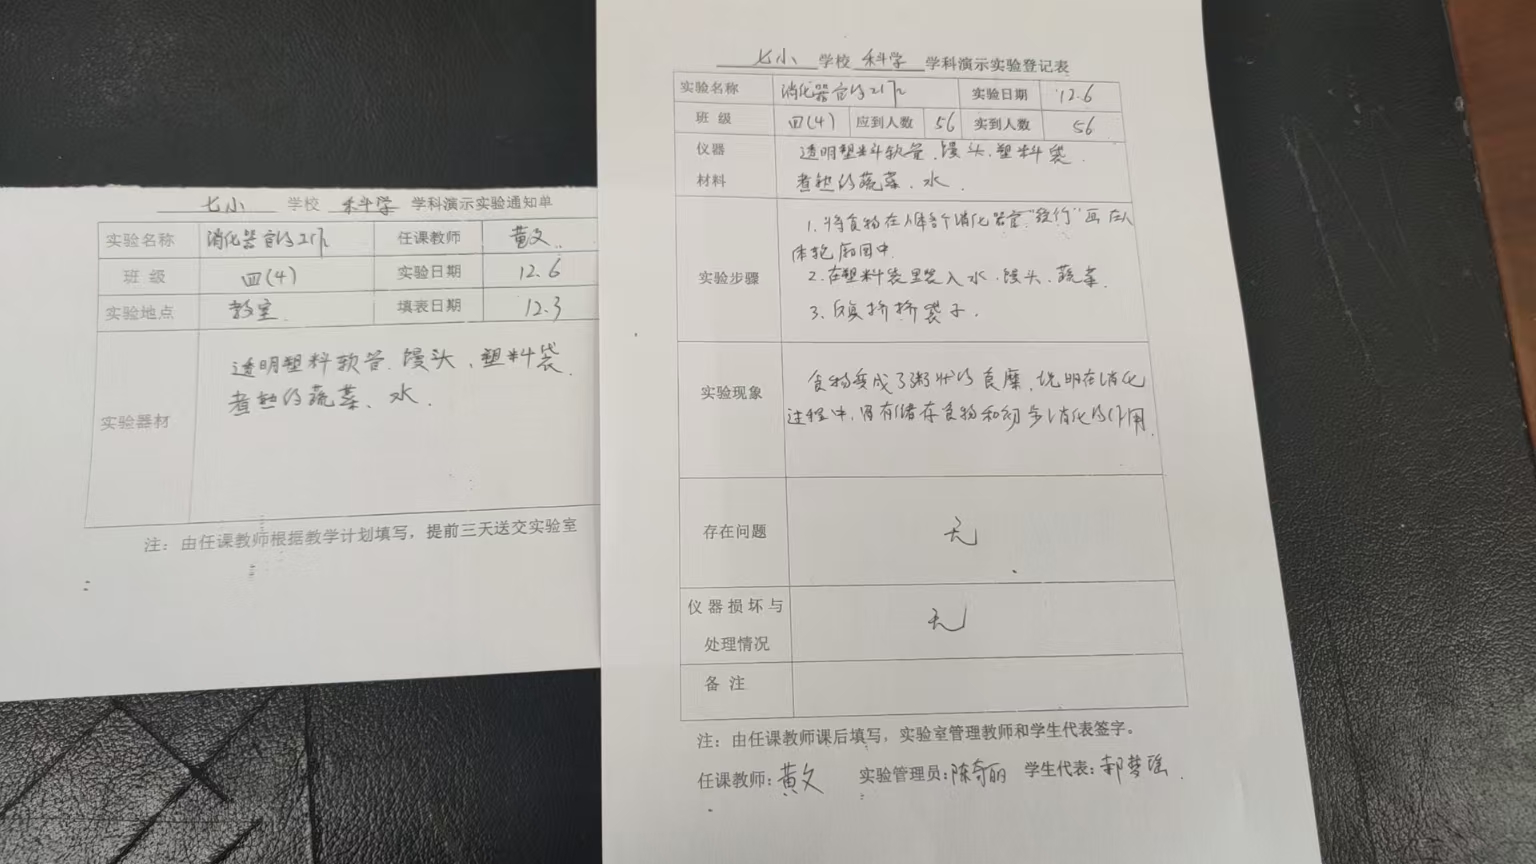 七小 学校 科学 学科演示实验通知单
实验名称 消化器官的 任课教师 黄文
班 级 四(4) 实验日期 12.6
实验地点 教室 填表日期 12.3
实验器材
透明塑料软管、馒头、塑料袋
煮熟的蔬菜、水.
注：由任课教师根据教学计划填写，提前三天送交实验室
七小 学校 科学 学科演示实验登记表
实验名称 消化器官的 实验日期 12.6
班 级 四(4) 应到人数 56 实到人数 56
仪器
材料
透明塑料软管、馒头、塑料袋
煮熟的蔬菜、水.
实验步骤
1. 将食物在人体各个消化器官"旅行"画在人
体轮廓图中.
2. 在塑料袋里装入水、馒头、蔬菜.
3. 反复挤挤袋子.
实验现象
食物变成了粥状的食糜，说明在消化
过程中，胃有储存食物和初步消化的作用.
存在问题 无
仪器损坏与
处理情况
无
备 注
注：由任课教师课后填写，实验室管理教师和学生代表签字。
任课教师：黄文 实验管理员：陈奇丽 学生代表：郝梦瑶.